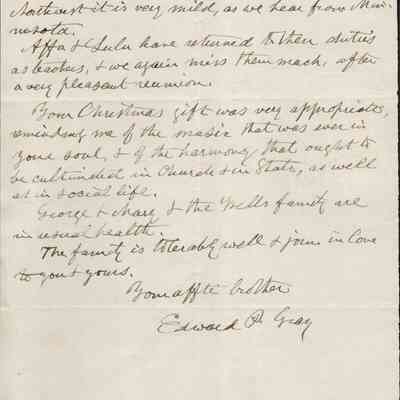 Northwest it is very mild, as we hear from Min-
nesota.
Affa & Lulu have returned to their duties
as teachers, & we again miss them much, after
a very pleasant reunion.
Your Christmas gift was very appropriate,
reminding me of the music that was ever in
your soul, & of the harmony, that ought to
be cultivated in Church & in State, as well
as in social life.
George & Mary & the Wells family are
in usual health.
The family is tolerably well & join in love
to you & yours.
Your affte brother
Edward P. Gray